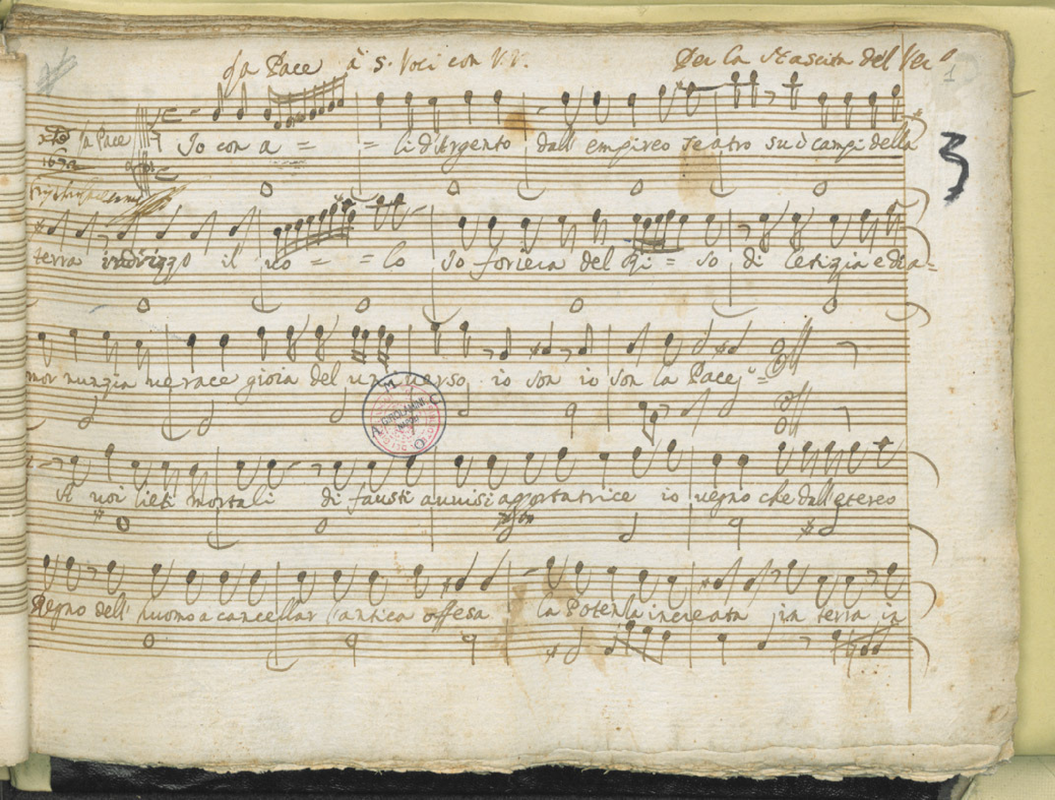 La Pace à 5. Voci con V.V. Per la Nascita del Ver
1
3
La Pace
Io con a = = li d'Argento dall' empireo teatro sù i campi della
terra indrizzo il uo = = lo Io foriera del Ri = so di letizia e dia =
mor nunzia uerace gioia del uniuerso io son io son la Pace
A uoi lieti mortali di fausti auuisi apportatrice io uegno che dall' etereo
Regno dell' huomo a cancellar l'antica offesa la Potenza increata in terra in